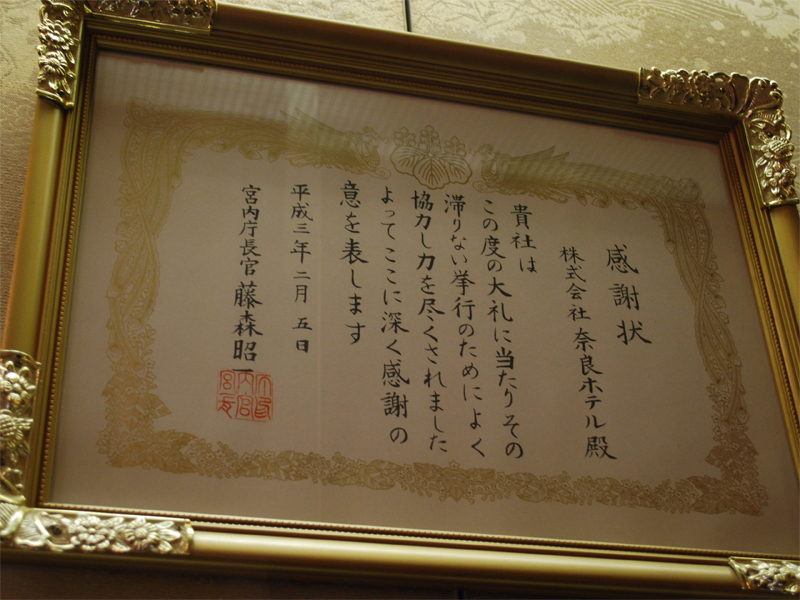 感謝状
株式会社 奈良ホテル殿
貴社は
この度の大礼に当たりその
滞りない挙行のためによく
協力し力を尽くされました
よってここに深く感謝の
意を表します
平成三年二月五日
宮内庁長官 藤森昭一